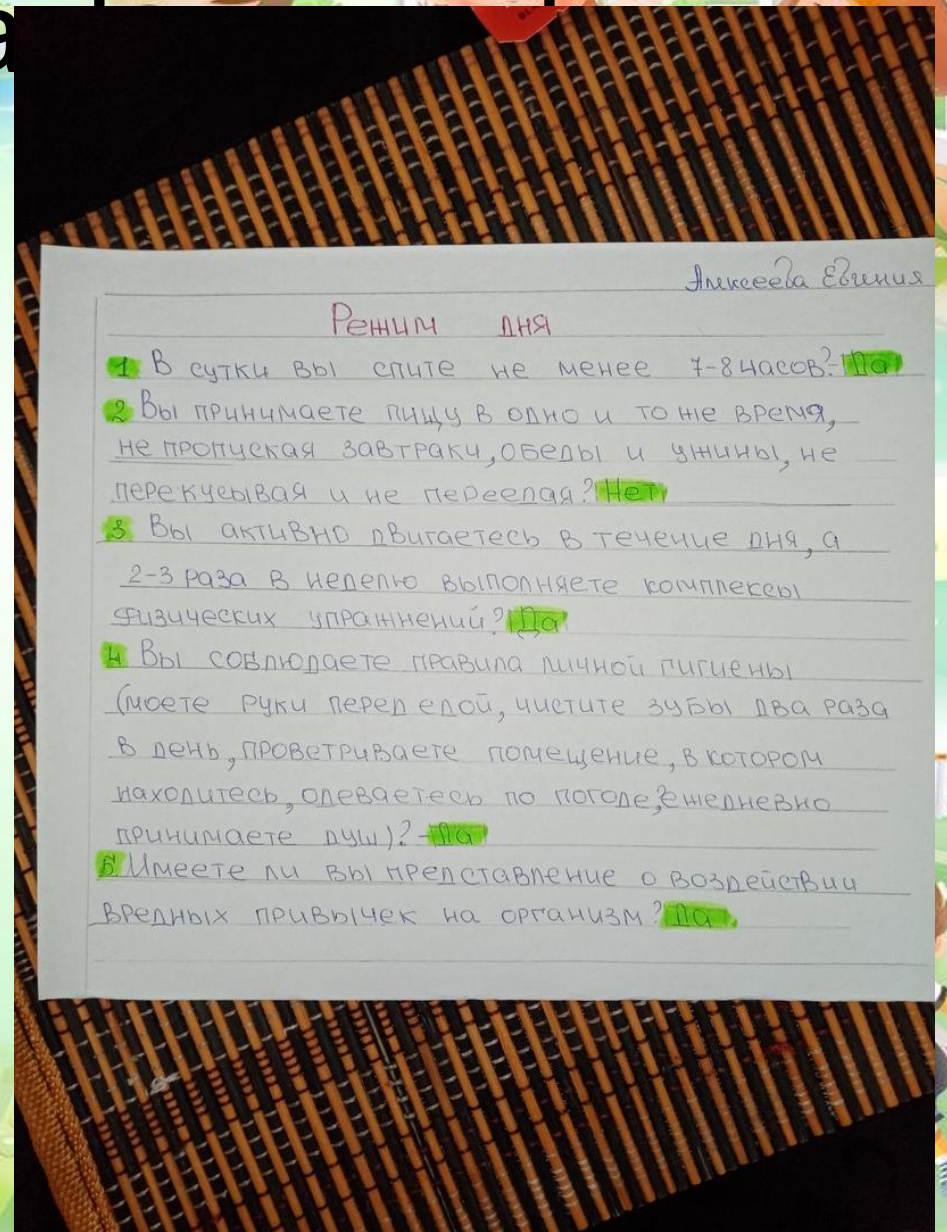 Алексеева Евгения
Режим дня
1 В сутки вы спите не менее 7-8 часов?- Да
2 Вы принимаете пищу в одно и то же время,
не пропуская завтраки, обеды и ужины, не
перекусывая и не переедая? Нет
3 Вы активно двигаетесь в течение дня, а
2-3 раза в неделю выполняете комплексы
физических упражнений? Да
4 Вы соблюдаете правила личной гигиены
(моете руки перед едой, чистите зубы два раза
в день, проветриваете помещение, в котором
находитесь, одеваетесь по погоде, ежедневно
принимаете душ)? - Да
5 Имеете ли вы представление о воздействии
вредных привычек на организм? Да